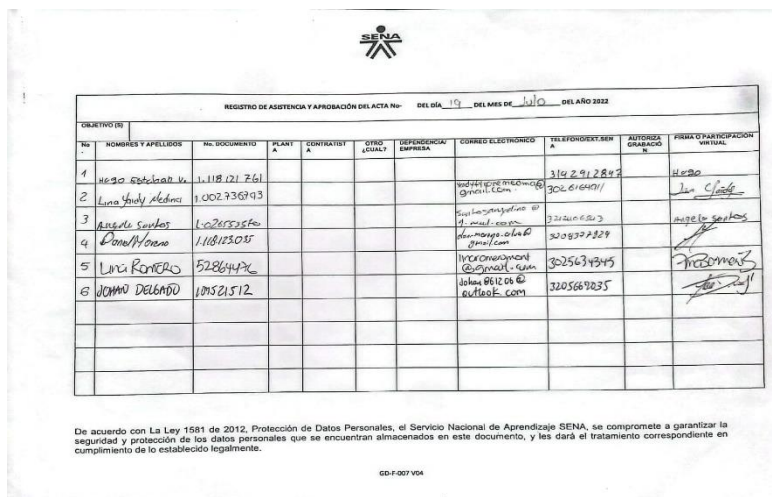 SENA
REGISTRO DE ASISTENCIA Y APROBACIÓN DEL ACTA No- DEL DÍA 19 DEL MES DE Julio DEL AÑO 2022
OBJETIVO (S)
No. NOMBRES Y APELLIDOS No. DOCUMENTO PLANTA CONTRATISTA OTRO ¿CUAL? DEPENDENCIA/EMPRESA CORREO ELECTRÓNICO TELÉFONO/EXT.SENA AUTORIZA GRABACIÓN FIRMA O PARTICIPACIÓN VIRTUAL
1 Hugo Esteban V. 1.118.121.761 3142912847 Hugo
2 Lina Yaidy Medina 1.002736793 @gmail.com
3 Angela Santos Angela Santos
4 Moreno 1.118123035 @gmail.com
5 Lina Romero 52864476 @gmail.com 3025634345
6 JOHAN DELGADO Johan861206@outlook.com 3205669035
De acuerdo con La Ley 1581 de 2012, Protección de Datos Personales, el Servicio Nacional de Aprendizaje SENA, se compromete a garantizar la
seguridad y protección de los datos personales que se encuentran almacenados en este documento, y les dará el tratamiento correspondiente en
cumplimiento de lo establecido legalmente.
GD-F-007 V04